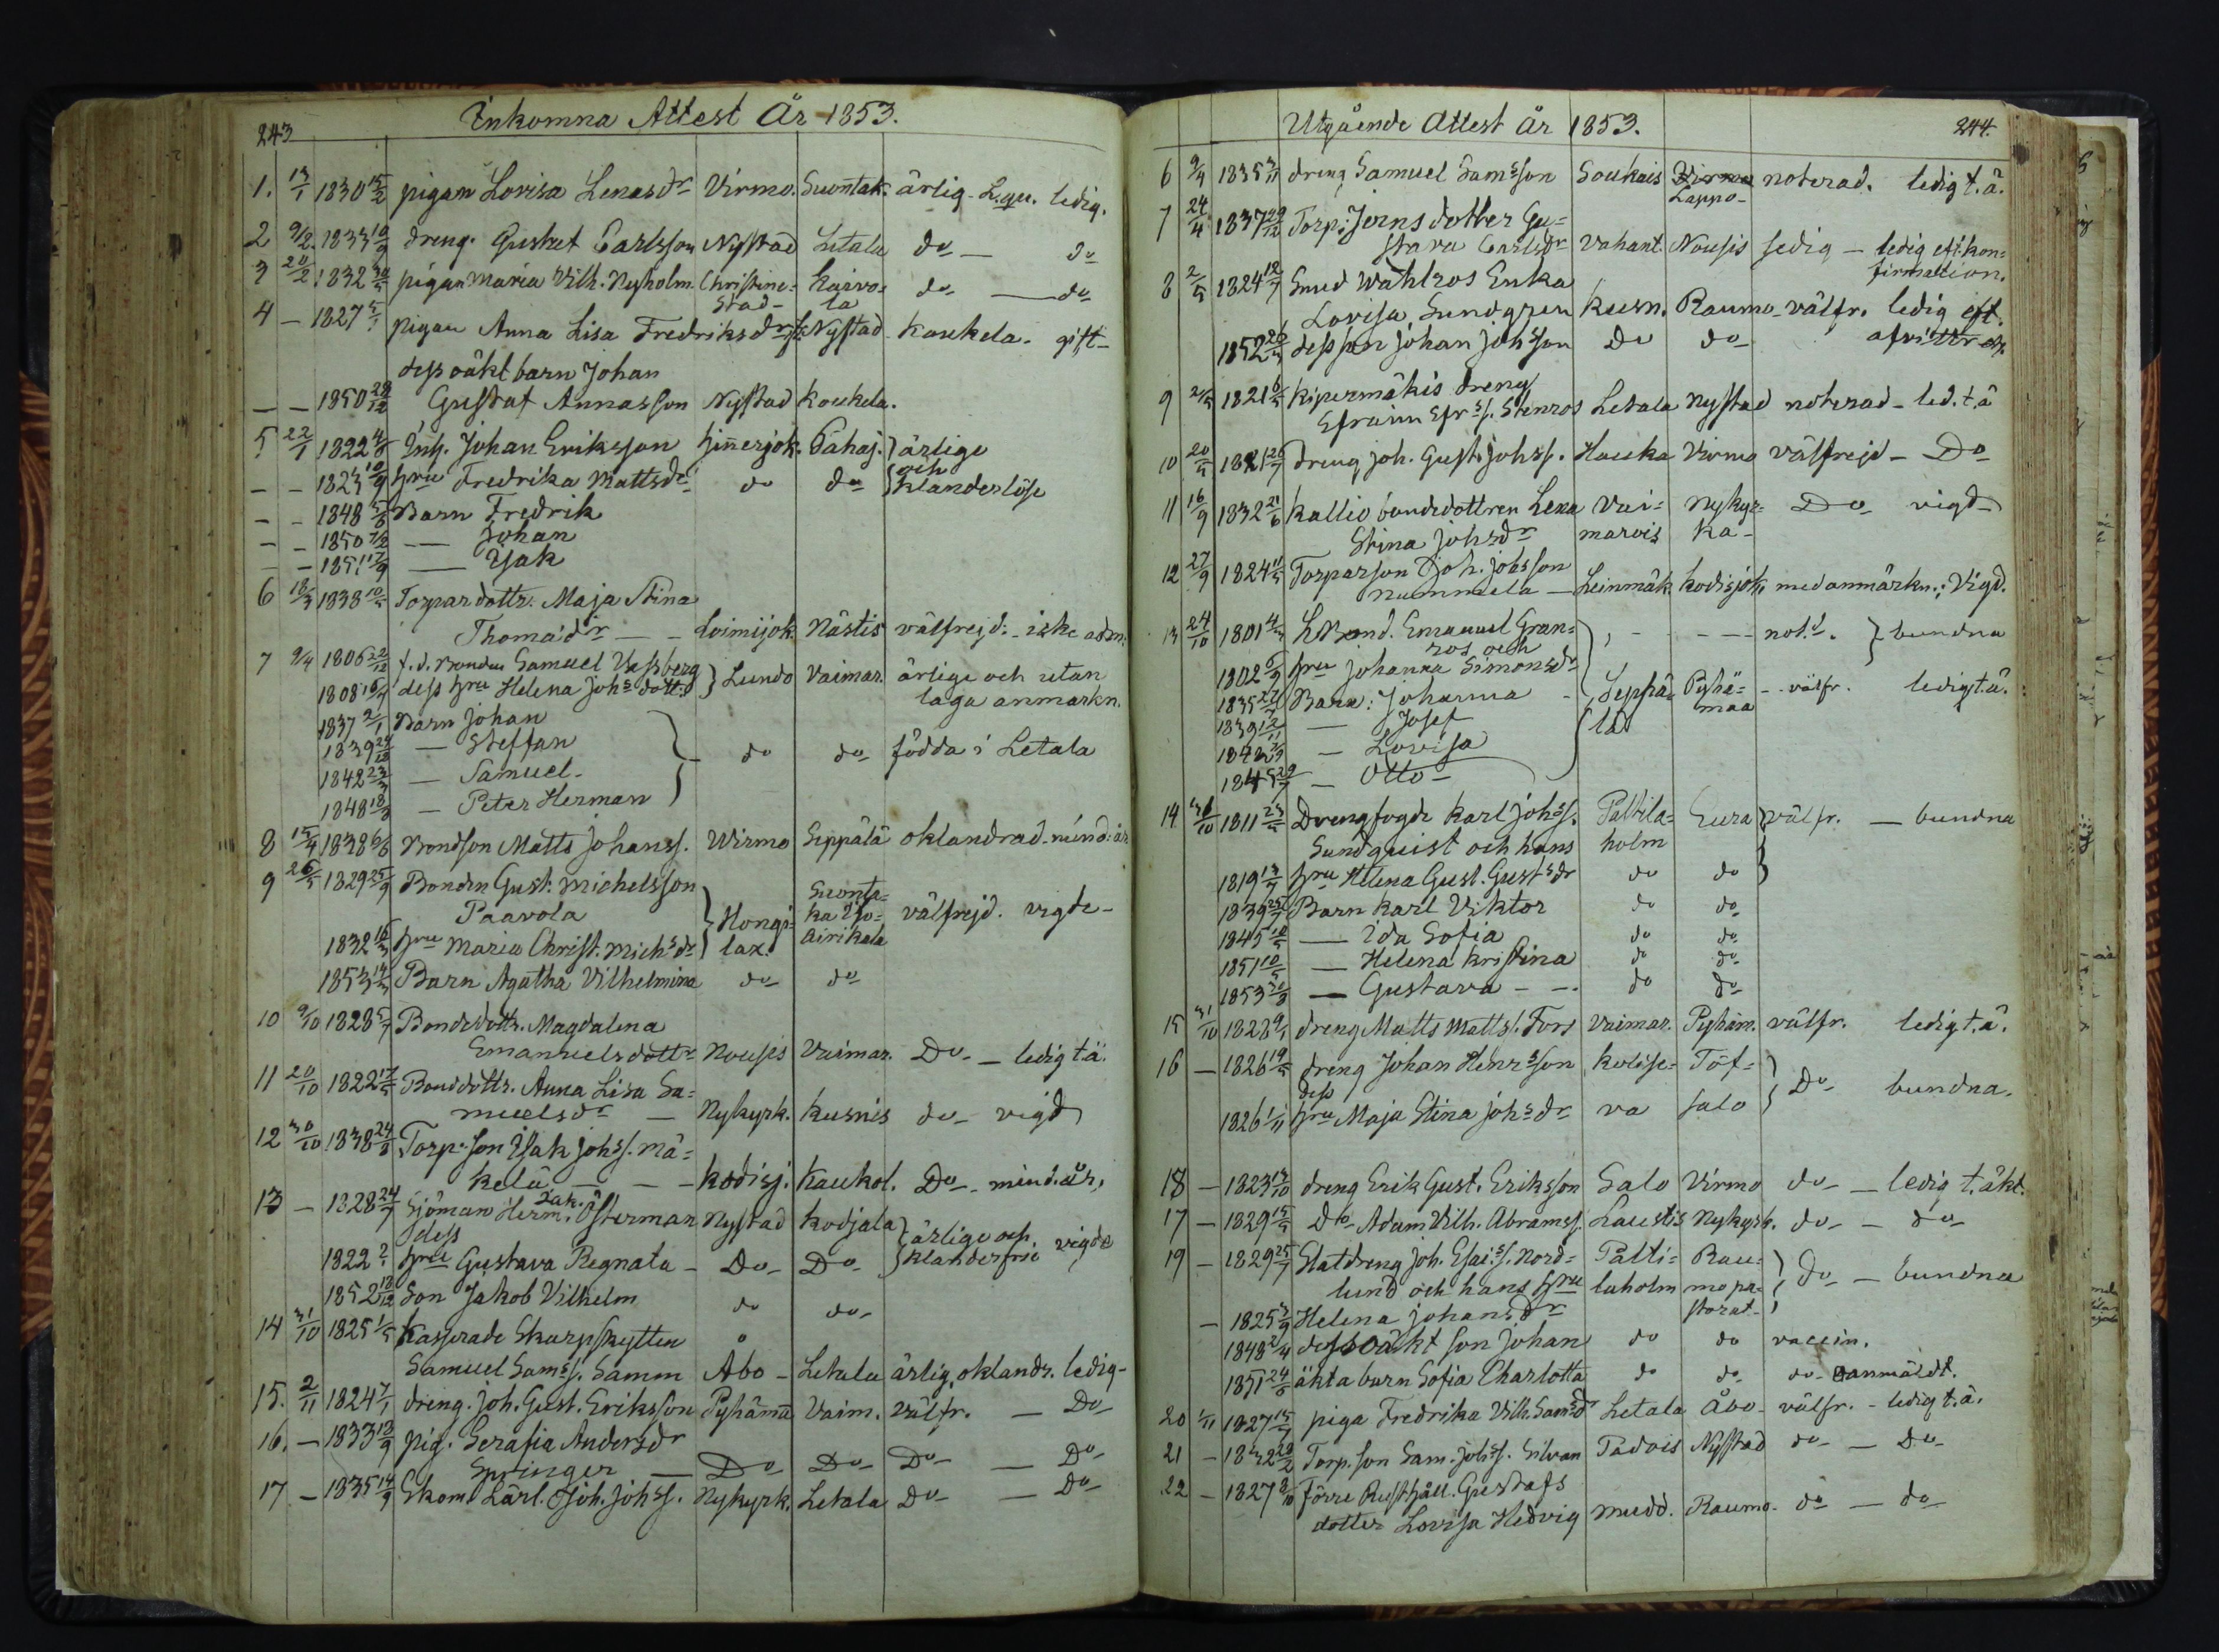 243
Inkomna Attest År 1853.
1. 13/1 1830 15/2 pigan Lovisa Lenasdr Virmo. Suontak. ärlig - L.qv. ledig.
2 9/2 1833 10/9 dreng. Gustaf Carlsson Nystad Letala do — do
3 20/2 1832 30/5 pigan Maria Vilh. Nyholm. Christine- Kaivo- do — do
stad - la
4 — 1827 pigan Anna Lisa Fredriksdr Nystad Koukela. gift -
dess oäkt barn Johan
— — 1850 28/12 Gustaf Annasson Nystad Koukela.
5 22/1 1822 4/8 Inh. Johan Eriksson Hinnerjok. Pahaj. ärlige
och
— — 1823 10/9 hru Fredrika Mattsdr do do klanderlöse
— — 1848 5/8 Barn Fredrik
— — 1850 7/2 — Johan
— — 1851 17/9 — Isak
6 18/3 1838 10/5 Torpardottr. Maja Stina
Thomädr — — Loimijok. Nästis välfrejd. - icke adm.
7 9/4 1806 22/12 f.d. Bonden Samuel Vessberg
1808 16/4 dess hru Helena Johs dottr. Lundo Vaimar. ärlige och utan
laga anmarkn.
1837 2/1 Barn Johan
1839 24/12 — Steffan do do födda i Letala
1842 23/3 — Samuel -
1848 18/3 — Peter Herman
8 15/4 1838 6/6 Bondson Matts Johanss. Wirmo Seppälä oklandrad. mind: år
9 26/5 1829 25/9 Bonden Gust. Michelsson Suonta-
Paavola Hongi- ka Yo- välfrejd. vigde -
1832 16/3 hru Maria Christ. Michsdr lax. Airikala
1853 14/3 Barn Agatha Vilhelmina do do
10 9/10 1828 5/7 Bondedottr. Magdalena
Emanuelsdottr Nousis Vaimar. Do — ledig t.ä.
11 20/10 1822 17/5 Bonddottr. Anna Lisa Sa=
muelsdr — Nykyrk. Kusnis do - vigd
12 30/10 1838 24/8 Torp. son Isak Johss. Mä=
kelä — — Kodisj. Kaukol. Do - mind. år,
13 — 1828 24/7 Sjöman Herm. Zak. Österman Nystad Kodjala ärlige och vigde
dess
1822 ? hru Gustava Regnata - Do Do klanderfrie
1852 18/12 Son Jakob Vilhelm do do
14 31/10 1825 1/5 Kasserade Skarpskytten
Samuel Sams. Samm Åbo - Letala ärlig, oklandr. ledig -
15. 2/11 1824 7/1 dreng. Joh. Gust. Eriksson Pyhämä Vaim. välfr. — Do
16. — 1833 18/9 pig. Serafia Andersdr
Springer — Do Do Do — Do
17 — 1835 14/9 Skom. Lärl. Joh. Johss. Nykyrk. Letala Do — Do
Utgående Attest År 1853. 244.
6 9/4 1835 3/11 dreng Samuel Samsson Soukais Virmo noterad. ledig t.ä.
Lappo -
7 24/4 1837 29/12 Torp: Jerns dotter Gu=
stava Carlsdr Vahant. Nousis sedig — ledig eft. kon=
firmation.
8 2/5 1824 12/7 Smed Wahlros Enka
Lovisa Sundgren Kusn. Raumo - välfr. ledig eft.
1852 26/5 dess son Johan Johsson do do afvittr.
9 2/5 1821 6/5 Kipermäkis dreng
Efraim Efrs. Stenros Letala Nystad noterad - led. t.ä
10 20/5 1821 26/7 dreng Joh. Gust. Johss. Hauka Virmo välfrejd - Do
11 16/9 1832 21/6 Kallio bondedottren Lena Vai= Nykyr= Do vigd -
Stina Johsdr marois ka -
12 27/9 1824 11/5 Torparson Joh. Johsson
Nummela — Leinmäk. Kodisjok. med anmärkn.: Vigd.
13 24/10 1801 4/3 L. Bond. Emanuel Gran= — not.d. bundna
ros och
1802 6/9 hru Johanna Simonsdr
1835 27/7 Barn: Johanna - Seppä= Pyhä= - välfr. ledig t.ä.
maa
1839 12/11 — Josef lä
1842 — Lovisa
1845 29/7 — Otto -
14 31/10 1811 23/5 Drengfogde Karl Johss. Paltila= Eura välfr. — bundna
Sundquist och hans holm
1819 13/7 hru Helena Gust. Gustsdr do do
1839 25/7 Barn Karl Viktor do do
1845 10/5 — Ida Sofia do do
1851 10/5 — Helena Kristina do do
1853 30/8 — Gustava - - do do
15 31/10 1828 9/1 dreng Matts Matts. Fors Vaimar. Pyhäm. välfr. ledig t.ä.
16 — 1826 19/5 dreng Johan Henrsson Kolise- Töf=
dess Do bundna.
1826 1/11 hru Maja Stina Johsdr va salo
18 — 1823 13/10 dreng Erik Gust. Eriksson Salo Virmo do — ledig t. äkt.
17 — 1829 15/5 Do Adam Vilh. Abramss. Laustis Nykyrk. do — do
19 — 1829 25/7 Statdreng Joh. Esai.s. Nord= Palti= Rau=
lund och hans hru laholm mo pa= do — bundna
— 1825 3/9 Helena Johansdr storat -
1848 2/4 dess oäkt son Johan do do vaccin.
1851 24/6 äkta barn Sofia Charlotta do do do oanmäldt.
20 1/11 1827 15/7 piga Fredrika Vilh. Samsdr Letala Åbo - välfr. - ledig t.ä.
21 — 1832 28/2 Torp. son Sam. Johss. Silvan Padois Nystad do — Do
22 — 1827 8/10 Förre Rusthåll. Gustafs
dotter Lovisa Hedvig Mudd. Raumo - do — do